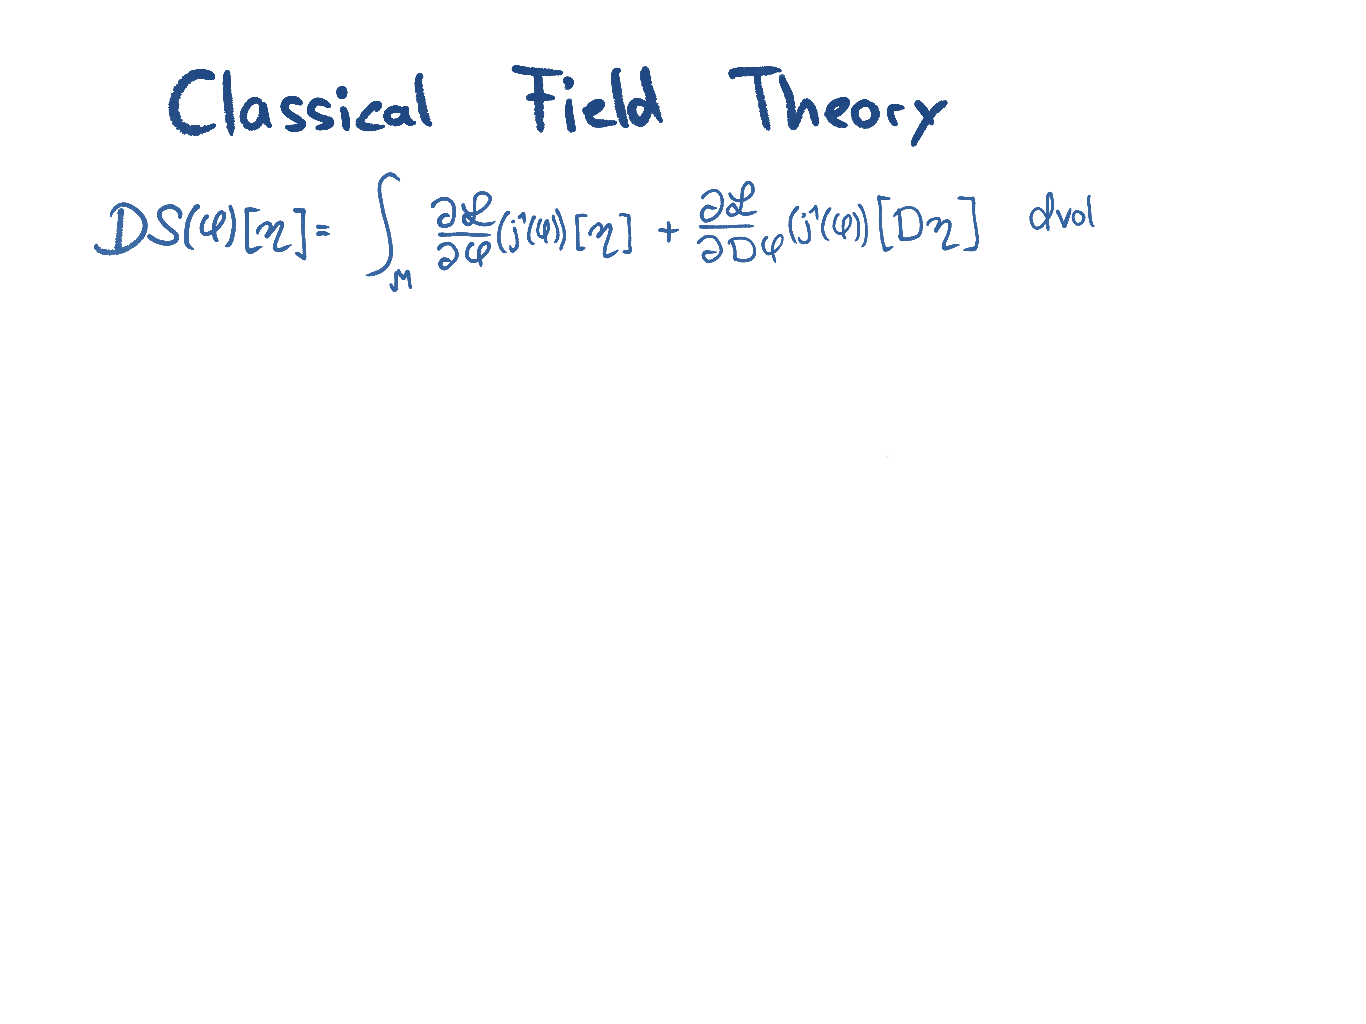 Classical Field Theory
DS(φ)[η] = ∫_M ∂ℒ/∂φ (j¹(φ))[η] + ∂ℒ/∂Dφ (j¹(φ))[Dη] dvol